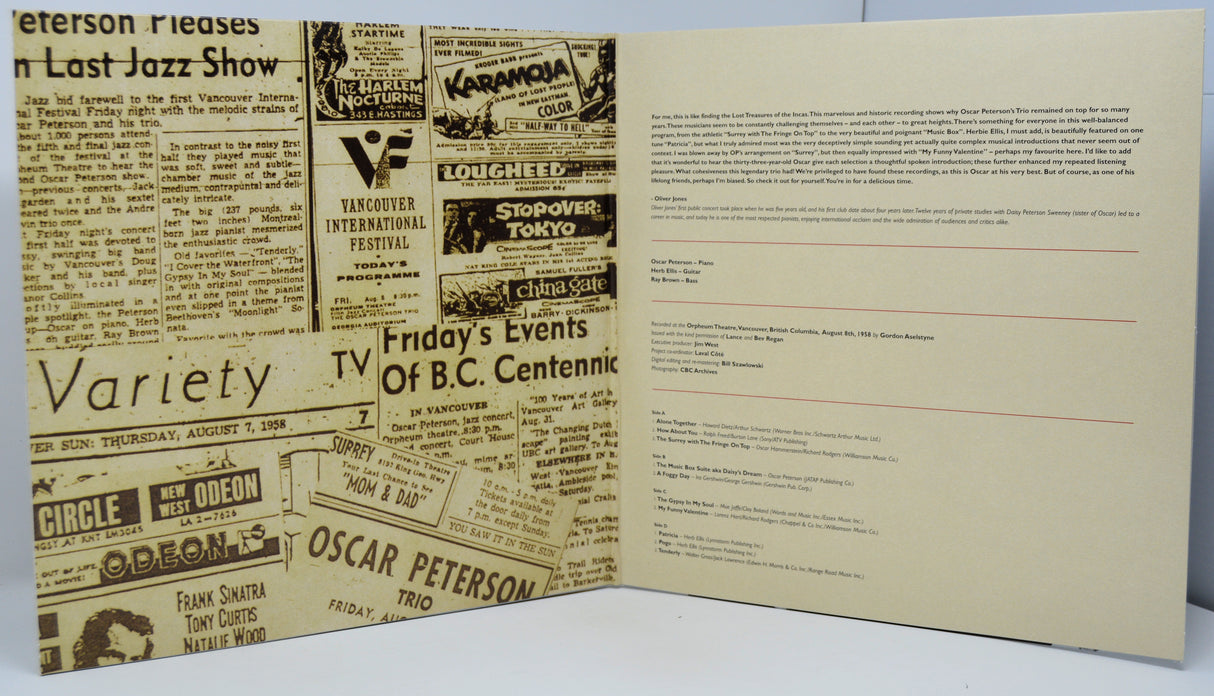 eterson Pleases
n Last Jazz Show
Jazz bid farewell to the first Vancouver Interna-
al Festival Friday night with the melodic strains of
ar Peterson and his trio.
bout 1,000 persons attend-
the fifth and final jazz con-
of the festival at the
heum Theatre to hear the
nd Oscar Peterson show.
previous concerts, Jack
garden and his sextet
eared twice and the Andre
vin trio once.
Friday night's concert
first half was devoted to
ssy, swinging big band
sic by Vancouver's Doug
ker and his band, plus
ections by local singer
anor Collins.
oftly illuminated in a
ple spotlight, the Peterson
up—Oscar on piano, Herb
on guitar, Ray Brown
In contrast to the noisy first
half they played music that
was soft, sweet and subtle—
chamber music of the jazz
medium, contrapuntal and deli-
cately intricate.
The big (237 pounds, six
feet two inches) Montreal-
born jazz pianist mesmerized
the enthusiastic crowd.
Old favorites — "Tenderly,"
"I Cover the Waterfront," "The
Gypsy In My Soul" — blended
in with original compositions
and at one point the pianist
even slipped in a theme from
Beethoven's "Moonlight" So-
nata.
Favorite with the crowd was
HARLEM
STARTIME
Starring
The HARLEM
NOCTURNE
Cabaret
343 E. HASTINGS
VF
VANCOUVER
INTERNATIONAL
FESTIVAL
TODAY'S
PROGRAMME
FRI. Aug 8 8:30 p.m.
ORPHEUM THEATRE
THE OSCAR PETERSON TRIO
GEORGIA AUDITORIUM
MOST INCREDIBLE SIGHTS
EVER FILMED!
SHOCKING!
TRUE!
KROGER BABB presents
KARAMOJA
LAND OF LOST PEOPLE!
IN NEW EASTMAN
COLOR
AND "HALF-WAY TO HELL"
LOUGHEED
THE FAR EAST! MYSTERIOUS! EXOTIC!
ADMISSION 65¢
STOPOVER:
TOKYO
CINEMASCOPE
Robert Wagner, Joan Collins
NAT KING COLE STARS IN HIS 1st ACTING
SAMUEL FULLER'S
china gate
CINEMASCOPE
BARRY-DICKINSON-
Variety
TV
7
VER SUN: THURSDAY, AUGUST 7, 1958
Friday's Events
Of B.C. Centennic
IN VANCOUVER
Oscar Peterson, jazz concert,
Orpheum theatre, 8:30 p.m.
concert, Court House
"100 Years of Art
Vancouver Art Gallery
Aug. 31.
"The Changing Dutch
scape" painting exhib
UBC art gallery. To Aug
ELSEWHERE IN B.
West Vancouver
Ambleside pool,
Saturday.
Tennis cham
To Satur
Trail Riders
trip over Old
to Barkerville,
CIRCLE
NEW
WEST ODEON
LA 2-7626
KINGSY. AT KNT EM3045
ODEON
FRANK SINATRA
TONY CURTIS
NATALIE WOOD
SURREY
Drive-in Theatre
8192 King Geo. Hwy
Your Last Chance to See
"MOM & DAD"
10 a.m. - 5 p.m. daily
Tickets available at
the door daily from
7 p.m. except Sunday.
YOU SAW IT IN THE SUN
OSCAR PETERSON
TRIO
FRIDAY, AU
For me, this is like finding the Lost Treasures of the Incas. This marvelous and historic recording shows why Oscar Peterson's Trio remained on top for so many
years. These musicians seem to be constantly challenging themselves – and each other – to great heights. There's something for everyone in this well-balanced
program, from the athletic "Surrey with The Fringe On Top" to the very beautiful and poignant "Music Box". Herbie Ellis, I must add, is beautifully featured on one
tune "Patricia", but what I truly admired most was the very deceptively simple sounding yet actually quite complex musical introductions that never seem out of
context. I was blown away by OP's arrangement on "Surrey", but then equally impressed with "My Funny Valentine" – perhaps my favourite here. I'd like to add
that it's wonderful to hear the thirty-three-year-old Oscar give each selection a thoughtful spoken introduction; these further enhanced my repeated listening
pleasure. What cohesiveness this legendary trio had! We're privileged to have found these recordings, as this is Oscar at his very best. But of course, as one of his
lifelong friends, perhaps I'm biased. So check it out for yourself. You're in for a delicious time.
- Oliver Jones
Oliver Jones' first public concert took place when he was five years old, and his first club date about four years later. Twelve years of private studies with Daisy Peterson Sweeney (sister of Oscar) led to a
career in music, and today he is one of the most respected pianists, enjoying international acclaim and the wide admiration of audiences and critics alike.
Oscar Peterson – Piano
Herb Ellis – Guitar
Ray Brown – Bass
Recorded at the Orpheum Theatre, Vancouver, British Columbia, August 8th, 1958 by Gordon Aselstyne
Issued with the kind permission of Lance and Bev Regan
Executive producer: Jim West
Project co-ordinator: Laval Côté
Digital editing and re-mastering: Bill Szawlowski
Photography: CBC Archives
Side A
1 Alone Together – Howard Dietz/Arthur Schwartz (Warner Bros Inc./Schwartz Arthur Music Ltd.)
2 How About You – Ralph Freed/Burton Lane (Sony/ATV Publishing)
3 The Surrey with The Fringe On Top – Oscar Hammerstein/Richard Rodgers (Williamson Music Co.)
Side B
1 The Music Box Suite aka Daisy's Dream – Oscar Peterson (JATAP Publishing Co.)
2 A Foggy Day – Ira Gershwin/George Gershwin (Gershwin Pub. Corp.)
Side C
1 The Gypsy In My Soul – Moe Jaffe/Clay Boland (Words and Music Inc./Essex Music Inc.)
2 My Funny Valentine – Lorenz Hart/Richard Rodgers (Chappell & Co Inc./Williamson Music Co.)
Side D
1 Patricia – Herb Ellis (Lynnstorm Publishing Inc.)
2 Pogo – Herb Ellis (Lynnstorm Publishing Inc.)
3 Tenderly – Walter Gross/Jack Lawrence (Edwin H. Morris & Co. Inc./Range Road Music Inc.)